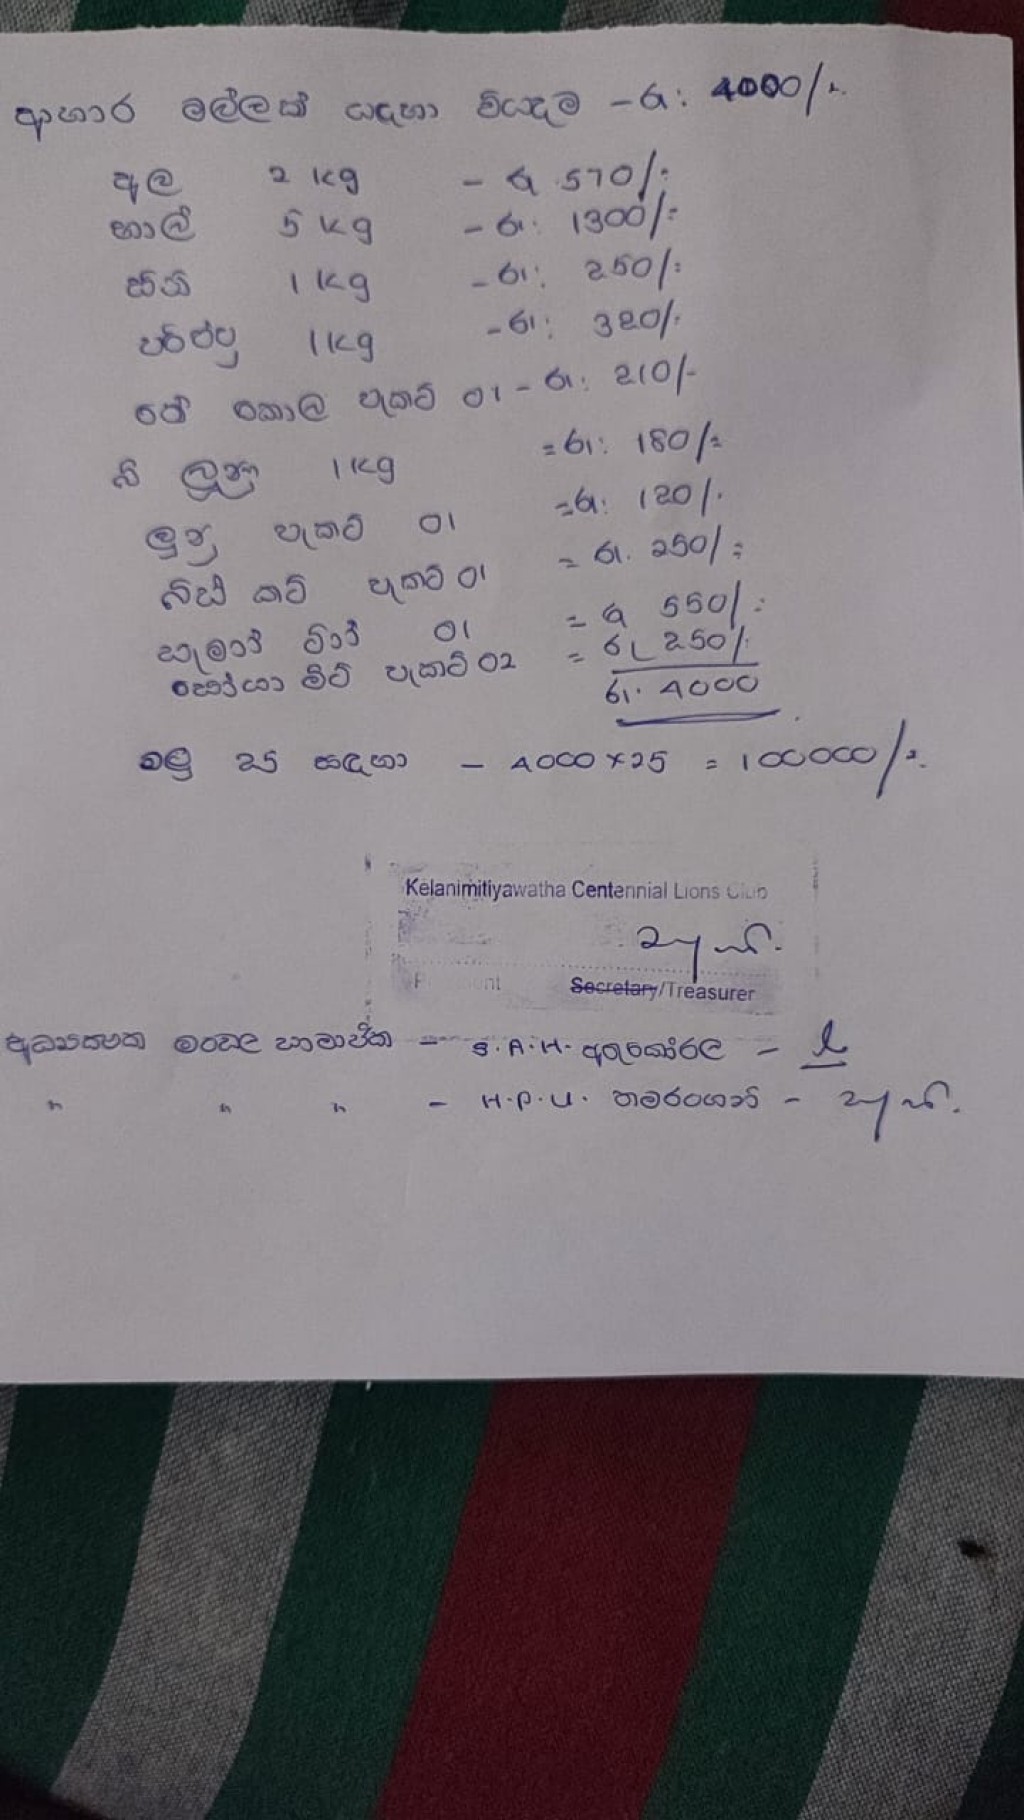 ආහාර මල්ලක් සඳහා වියදම - රු: 4000/-
අල 2 kg - රු 570/-
හාල් 5 kg - රු: 1300/-
සීනි 1 kg - රු: 250/-
පරිප්පු 1 kg - රු: 320/-
තේ කොල පැකට් 01 - රු: 210/-
බී ලූනු 1 kg = රු: 180/=
ලුනු පැකට් 01 = රු: 120/-
බිස් කට් පැකට් 01 = රු. 250/=
සැමන් ටින් 01 = රු 550/-
සෝයා මීට් පැකට් 02 = රු 250/-
රු. 4000
මලු 25 සඳහා - 4000 × 25 = 100000/-
Kelanimitiyawatha Centennial Lions Club
President Secretary/Treasurer
අධ්‍යක්ෂක මංඩල සාමාජික - S.A.H. අතුකෝරල -
" " " - H.P.U.